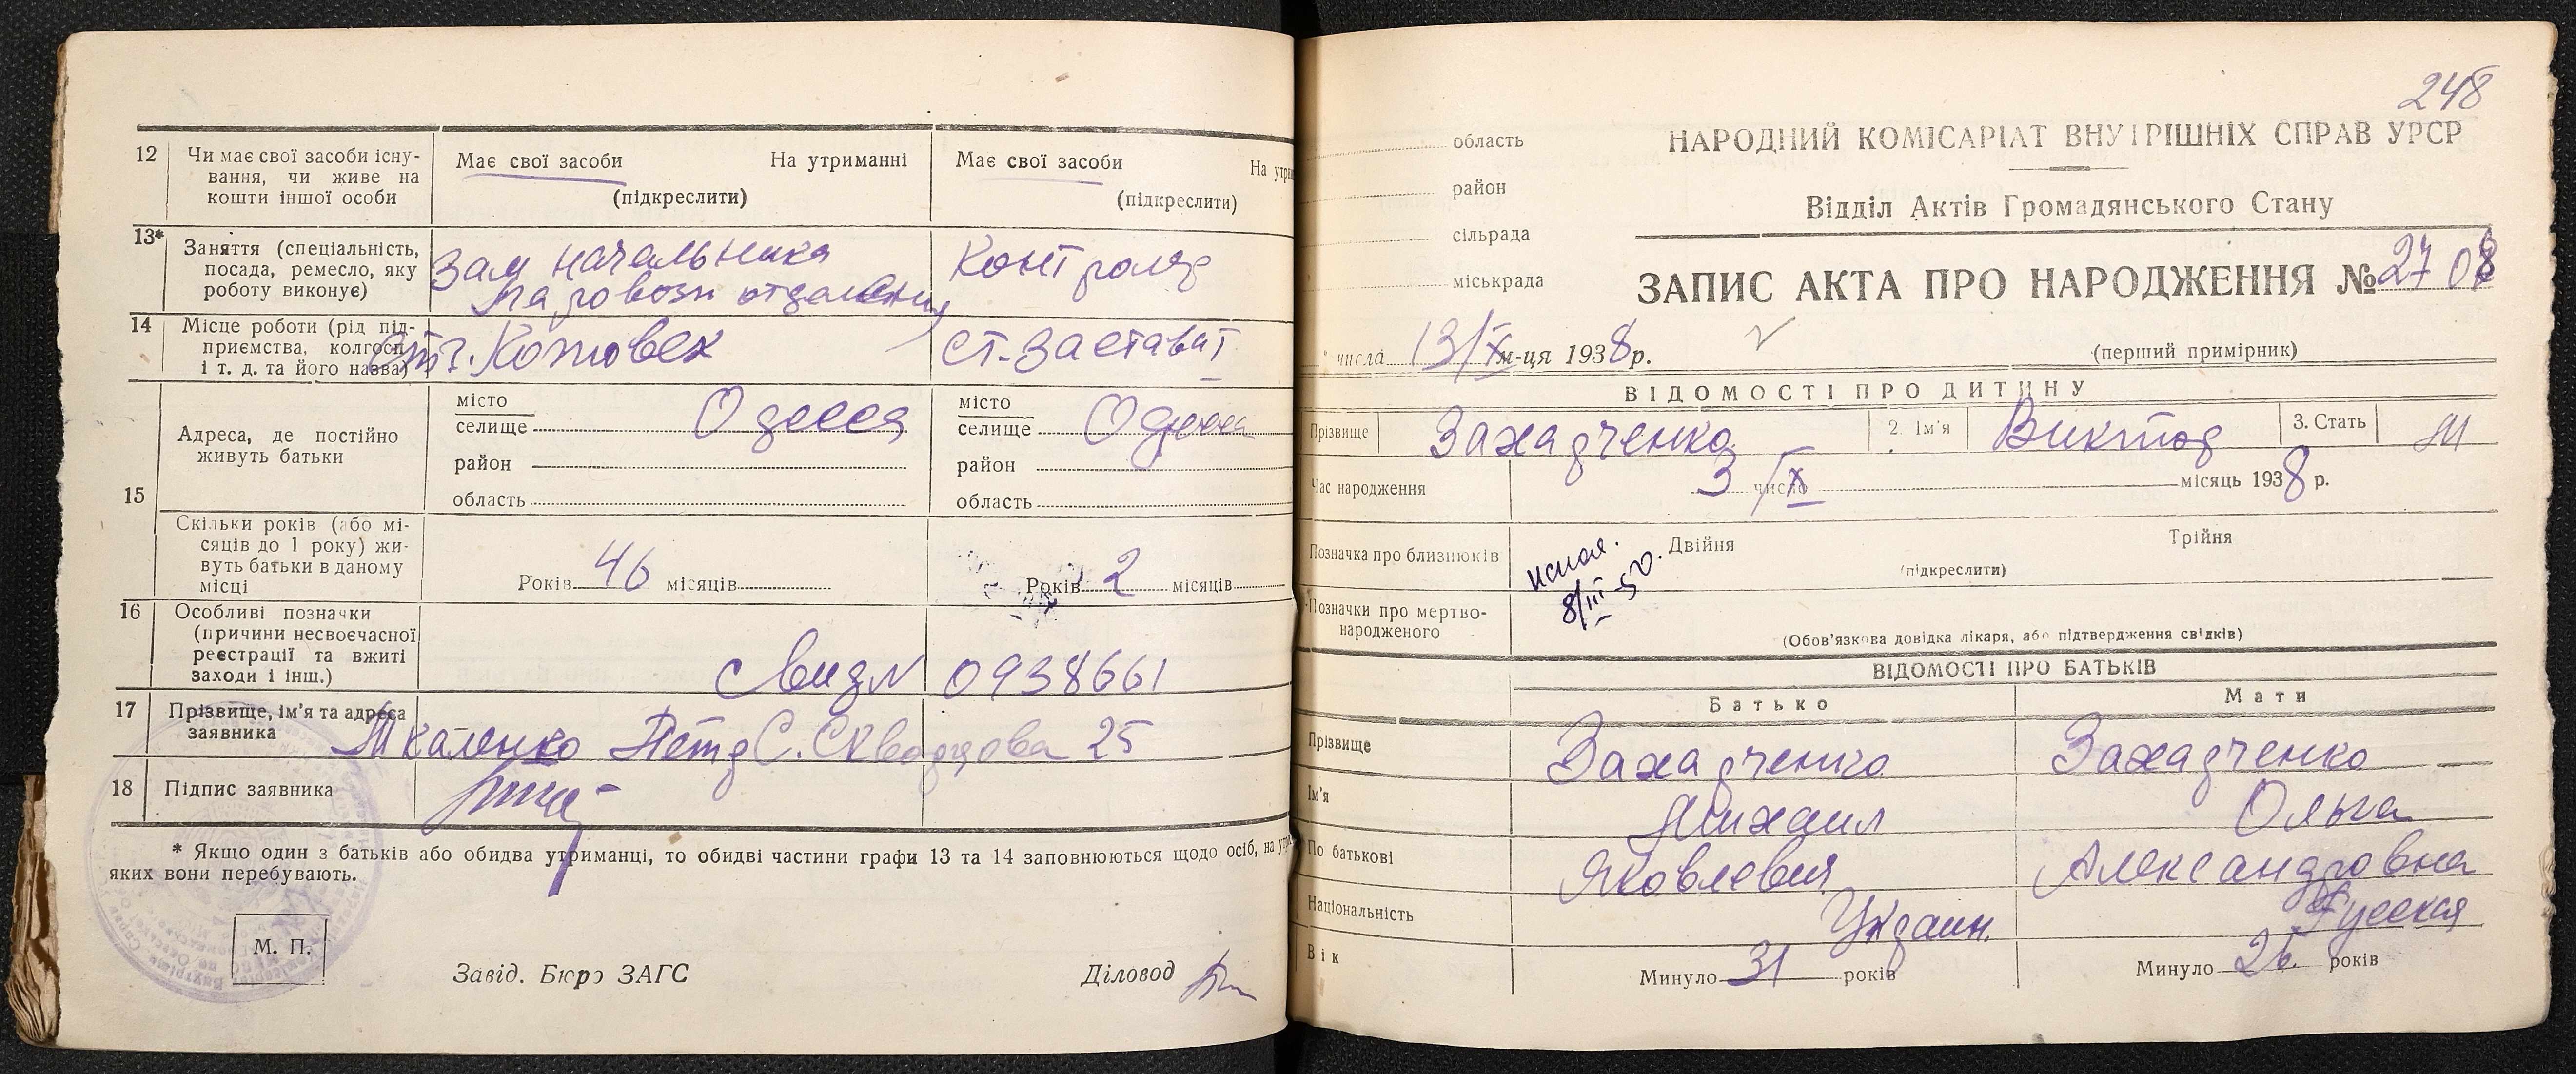 12
Чи має свої засоби існу-
вання, чи живе на
кошти іншої особи
Має свої засоби На утриманні
(підкреслити)
Має свої засоби На утрим
(підкреслити)
13*
Заняття (спеціальність,
посада, ремесло, яку
роботу виконує)
Зам начальника
паровозн отделения
Контролер
14
Місце роботи (рід під-
приємства, колгосп
і т. д. та його назва)
Котовск
Ст-Застава I
15
Адреса, де постійно
живуть батьки
місто
селище Одесса
район
область
місто
селище Одесса
район
область
Скільки років (або мі-
сяців до 1 року) жи-
вуть батьки в даному
місці
Років 46 місяців
Років 2 місяців
16
Особливі позначки
(причини несвоєчасної
реєстрації та вжиті
заходи і інш.)
Свид N 0938661
17
Прізвище, ім'я та адреса
заявника
Ткаленко Петр С. Скворцова 25
18
Підпис заявника
* Якщо один з батьків або обидва утриманці, то обидві частини графи 13 та 14 заповнюються щодо осіб, на утри
яких вони перебувають.
М. П.
Завід. Бюро ЗАГС
Діловод
248
область
район
сільрада
міськрада
НАРОДНИЙ КОМІСАРІАТ ВНУТРІШНІХ СПРАВ УРСР
Відділ Актів Громадянського Стану
ЗАПИС АКТА ПРО НАРОДЖЕННЯ № 2708
числа 13/IX м-ця 1938 р.
(перший примірник)
ВІДОМОСТІ ПРО ДИТИНУ
Прізвище Захарченко 2. Ім'я Виктор 3. Стать М
Час народження 3 число IX місяць 1938 р.
Позначка про близнюків Двійня Трійня
(підкреслити)
8/III-50.
Позначки про мертво-
народженого
(Обов'язкова довідка лікаря, або підтвердження свідків)
ВІДОМОСТІ ПРО БАТЬКІВ
Батько Мати
Прізвище Захарченко Захарченко
Ім'я Михаил Ольга
По батькові Яковлевич Александровна
Національність Украин. Русская
Вік Минуло 31 років Минуло 26 років